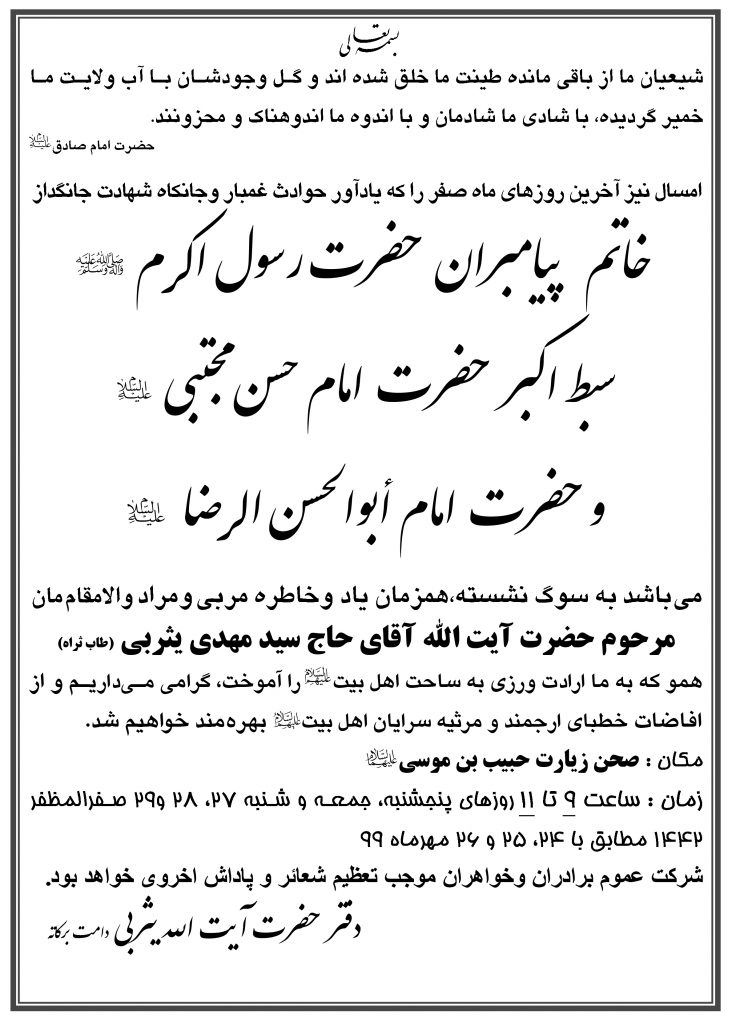 بسمه تعالی
شیعیان ما از باقی مانده طینت ما خلق شده اند و گـل وجودشـان بـا آب ولایـت مـا
خمیر گردیده، با شادی ما شادمان و با اندوه ما اندوهناک و محزونند.
حضرت امام صادق علیه السلام
امسال نیز آخرین روزهای ماه صفر را که یادآور حوادث غمبار وجانکاه شهادت جانگداز
خاتم پیامبران حضرت رسول اکرم صلی الله علیه وآله وسلم
سبط اکبر حضرت امام حسن مجتبی علیه السلام
و حضرت امام أبوالحسن الرضا علیه السلام
می‌باشد به سوگ نشسته،همزمان یاد وخاطره مربی ومراد والامقام‌مان
مرحوم حضرت آیت الله آقای حاج سید مهدی یثربی (طاب ثراه)
همو که به ما ارادت ورزی به ساحت اهل بیت علیهم السلام را آموخت، گرامی مـی‌داریـم و از
افاضات خطبای ارجمند و مرثیه سرایان اهل بیت علیهم السلام بهره‌مند خواهیم شد.
مکان : صحن زیارت حبیب بن موسی علیهما السلام
زمان : ساعت ۹ تا ۱۱ روزهای پنجشنبه، جمعـه و شـنبه ۲۷، ۲۸ و۲۹ صـفرالمظفر
۱۴۴۲ مطابق با ۲۴، ۲۵ و ۲۶ مهرماه ۹۹
شرکت عموم برادران وخواهران موجب تعظیم شعائر و پاداش اخروی خواهد بود.
دفتر حضرت آیت الله یثربی دامت برکاته